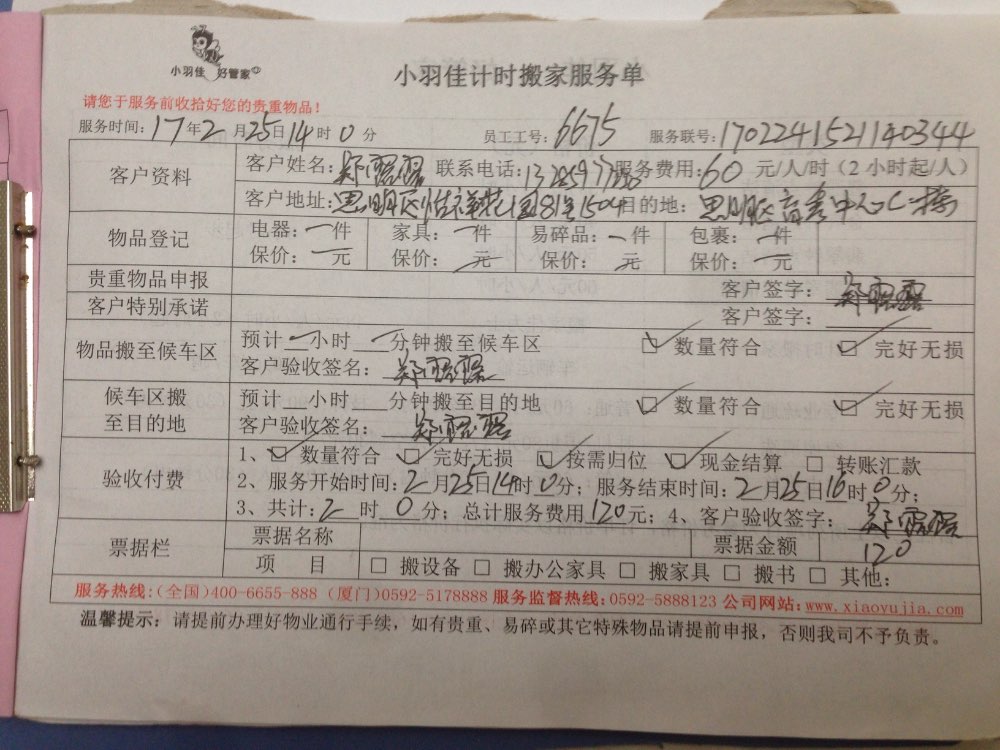 小羽佳 好管家
小羽佳计时搬家服务单
请您于服务前收拾好您的贵重物品！
服务时间：17年2月25日14时0分 员工工号：6675 服务联号：1702241521140344
客户资料 客户姓名：郑 联系电话： 服务费用：60元/人/时（2小时起/人）
客户地址：思明区 目的地：思明区育秀中心C栋
物品登记 电器：一件 家具：一件 易碎品：一件 包裹：一件
保价：一元 保价：一元 保价：一元 保价：一元
贵重物品申报 客户签字：郑
客户特别承诺 客户签字：
物品搬至候车区 预计一小时一分钟搬至候车区 ☑ 数量符合 ☑ 完好无损
客户验收签名：郑
候车区搬至目的地 预计__小时__分钟搬至目的地 ☑ 数量符合 ☑ 完好无损
客户验收签名：郑
验收付费 1、☑ 数量符合 ☑ 完好无损 ☑ 按需归位 ☑ 现金结算 □ 转账汇款
2、服务开始时间：2月25日14时0分；服务结束时间：2月25日16时0分；
3、共计：2时0分；总计服务费用120元；4、客户验收签字：郑
票据栏 票据名称 票据金额 120
项 目 □ 搬设备 □ 搬办公家具 □ 搬家具 □ 搬书 □ 其他：
服务热线：(全国)400-6655-888 (厦门)0592-5178888 服务监督热线：0592-5888123 公司网站：www.xiaoyujia.com
温馨提示：请提前办理好物业通行手续，如有贵重、易碎或其它特殊物品请提前申报，否则我司不予负责。